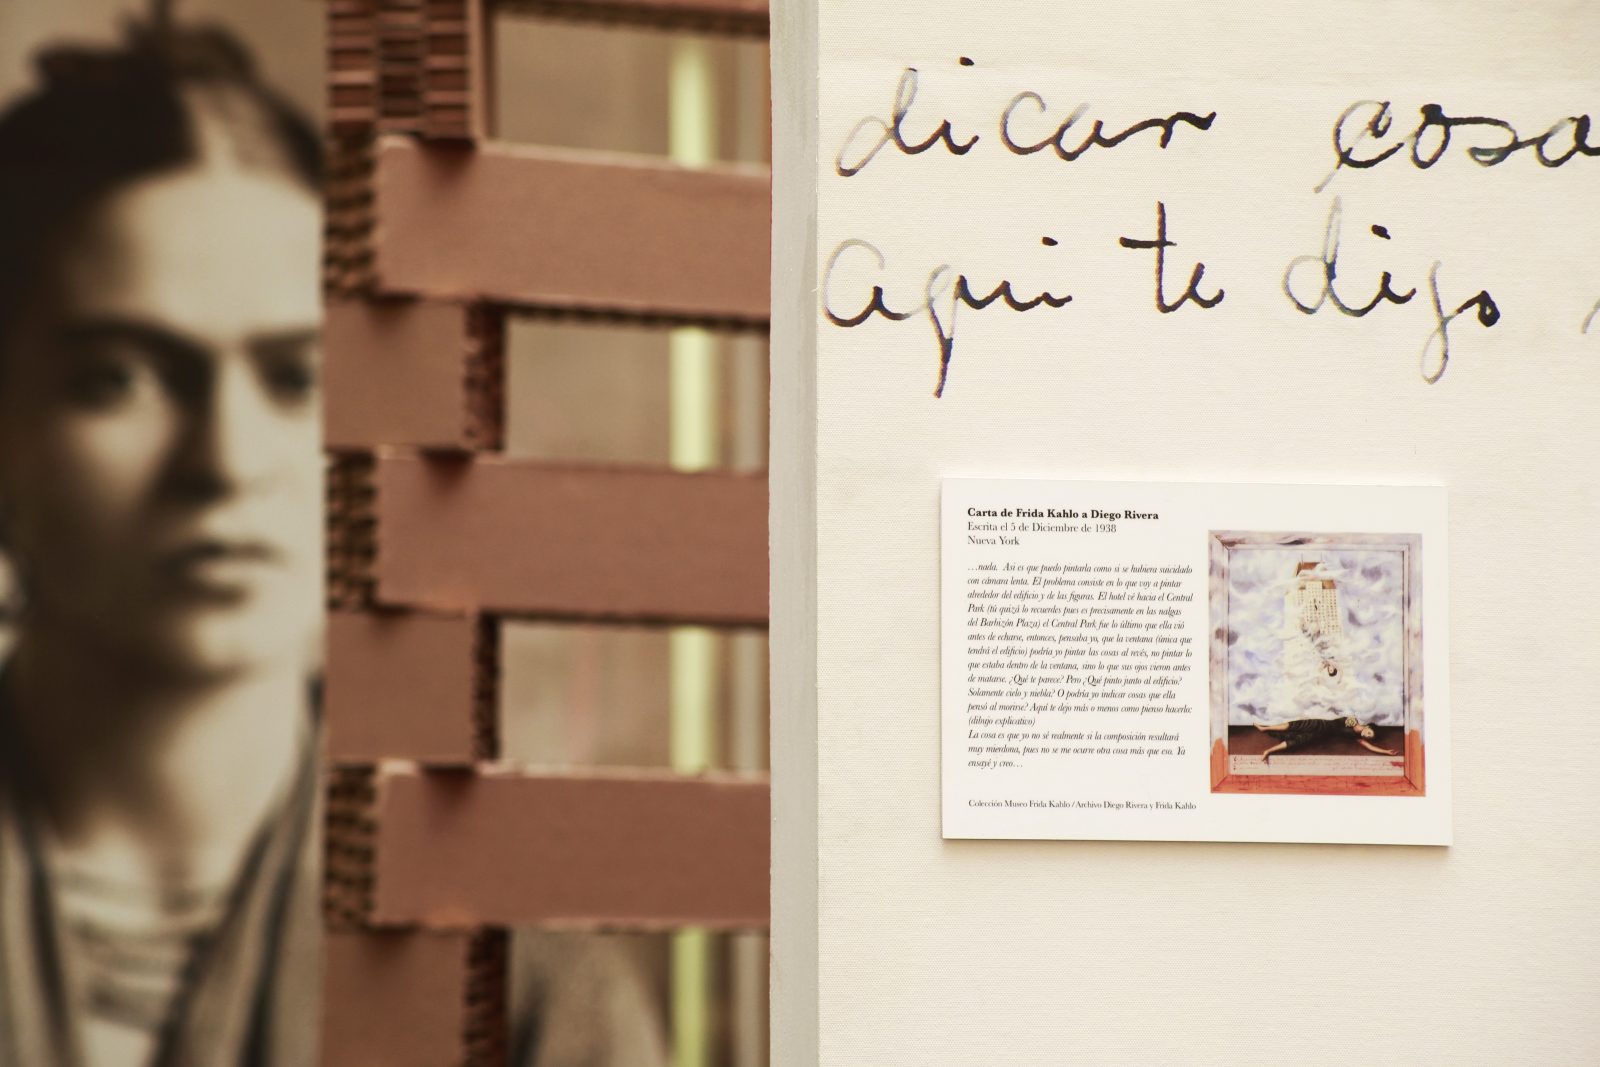 dicar cosa
Aqui te digo
Carta de Frida Kahlo a Diego Rivera
Escrita el 5 de Diciembre de 1938
Nueva York
…nada. Asi es que puedo pintarla como si se hubiera suicidado
con cámara lenta. El problema consiste en lo que voy a pintar
alrededor del edificio y de las figuras. El hotel vé hacia el Central
Park (tú quizá lo recuerdes pues es precisamente en las nalgas
del Barbizón Plaza) el Central Park fue lo último que ella vió
antes de echarse, entonces, pensaba yo, que la ventana (única que
tendrá el edificio) podría yo pintar las cosas al revés, no pintar lo
que estaba dentro de la ventana, sino lo que sus ojos vieron antes
de matarse. ¿Qué te parece? Pero ¿Qué pinto junto al edificio?
Solamente cielo y niebla? O podría yo indicar cosas que ella
pensó al morirse? Aquí te dejo más o menos como pienso hacerlo:
(dibujo explicativo)
La cosa es que yo no sé realmente si la composición resultará
muy mierdona, pues no se me ocurre otra cosa más que eso. Ya
ensayé y creo…
Colección Museo Frida Kahlo / Archivo Diego Rivera y Frida Kahlo